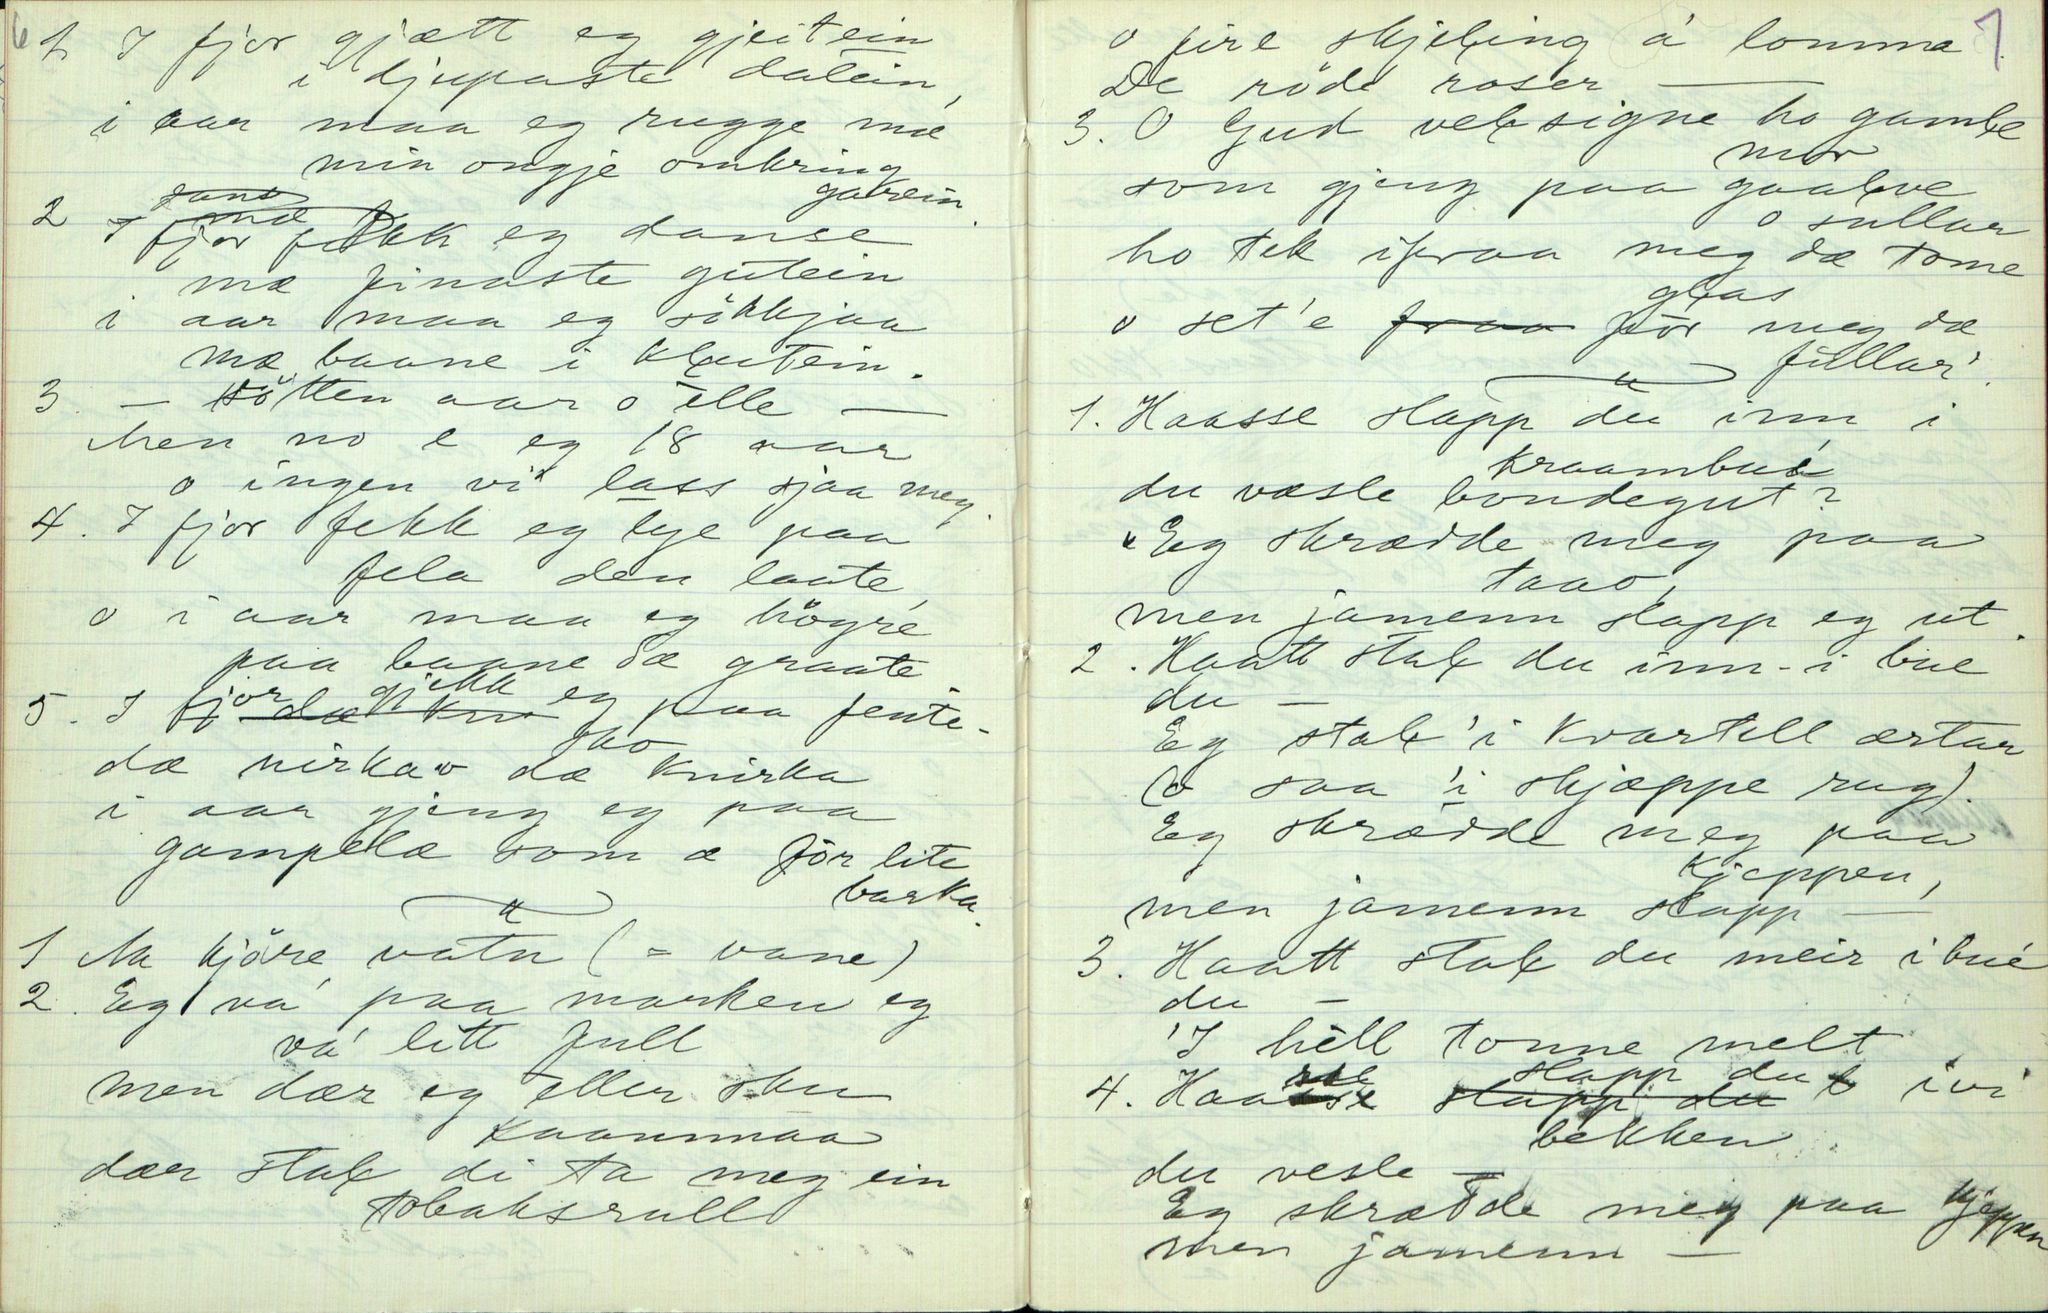 6
1. I fjor gjætt eg gjeitein
i djupaste dalein,
i aar maa eg rugge mæ
min ongje omkring
garein.
2 I fjor fekk eg danse
mæ finaste gutein
i aar maa eg sökkjaa
mæ baane i klutein.
3. — søtten aar o ille —
Men no e eg 18 aar
o ingen vi lass sjaa meg.
4. I fjor fekk eg lye paa
fela den laate,
o i aar maa eg högre
paa baane dæ graate
5. I fjor gjekk eg paa fente-
sko
dæ nirka o dæ knirka
i aar gjeng eg paa
gampelæ som æ för lite
barka.
1 Aa kjöre vatn (= vane)
2. Eg va' paa marken eg
va' litt full
men dær eg eller sku
kaanmaa
dær stal di ta meg ein
tobaksrull
7
o fire skjeling á lomma.
De röde roser —
3. O Gud velsigne ho gamle
mor
som gjeng paa gaalve
o sullar
ho tek ifraa meg dæ tome
glas
o set'e för meg dæ
fullar'.
1. Haasse slapp du inn i
kraambue
du væsle bondegut?
Eg skrædde meg paa
taao,
men jamenn slapp eg ut.
2. Haatt stal du inn i bue
du —
Eg stal 'i kvartell ærtar
(o saa 'i skjæppe rug).
Eg skrædde meg paa
kjeppen,
men jamenn slapp —
3. Haatt stal du meir i bue
du —
'I heil tonne melt
4. Haasse slapp du ivi
bekken
du vesle —
Eg skrædde meg paa kjeppen
men jamenn —